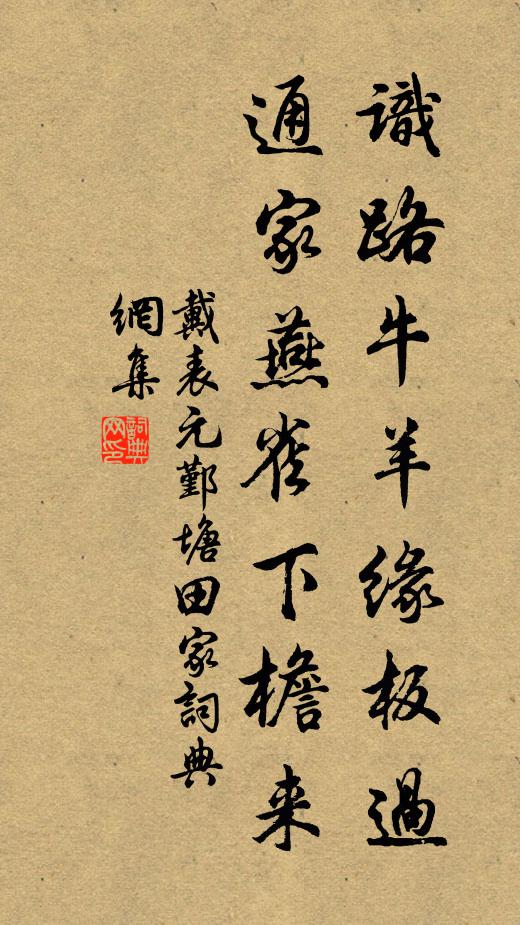 識路牛羊緣板過
通家燕雀下檐来
戴表元鄞塘田家詞典
網集
詞典网印